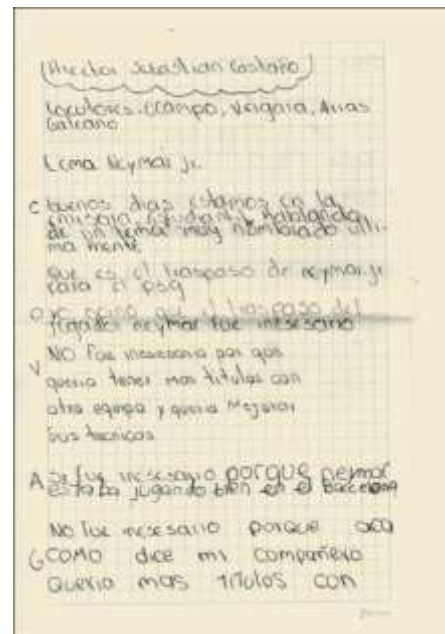 (Director Sebastian Castaño)
Locutores: Ocampo, Vergara, Arias
Galeano
Tema Neymar Jr.
C buenos dias estamos en la
emisora estudiantil hablando
de un tema muy nombrado ulti-
ma mente
que es el traspaso de neymar jr
para el psg
O yo opino que el traspaso del
jugador neymar fue inesesario
NO fue inesesario por que
V queria tener mas titulos con
otro equipo y queria Mejorar
sus tecnicas
A Si fue inesesario porque neymar
estaba jugando bien en el barcelona
No fue inesesario porque aca
G COMO dice mi compañero
Queria mas titulos con